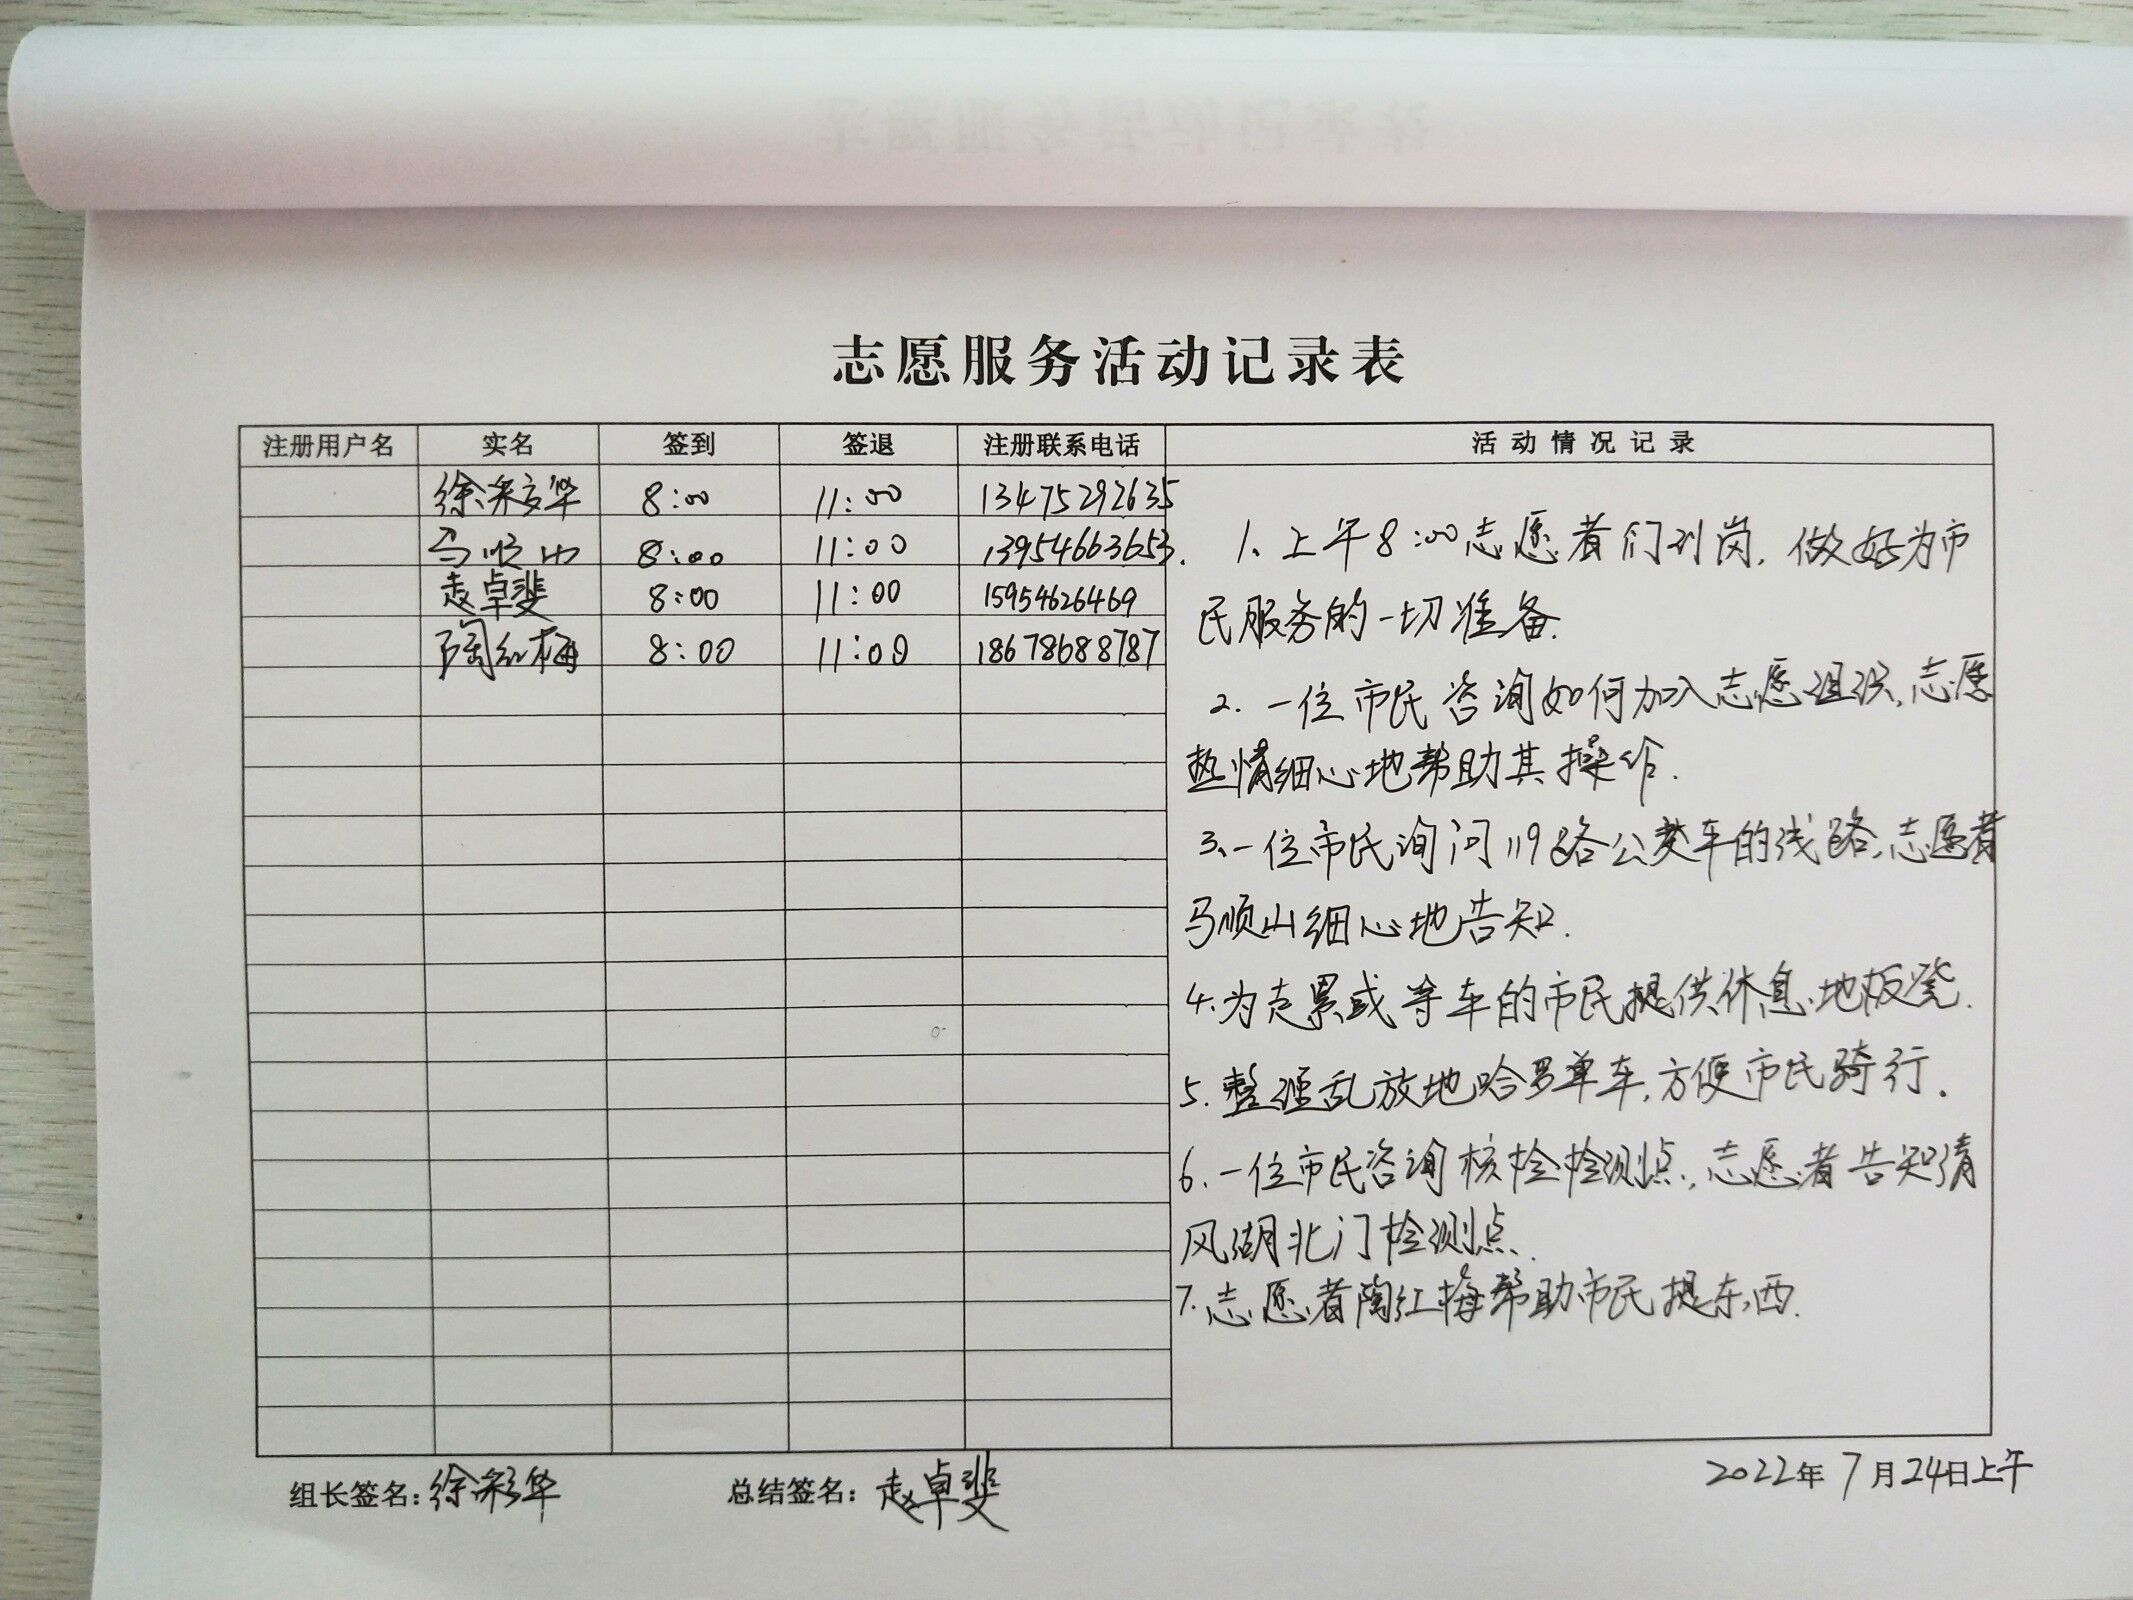 志愿服务活动记录表
注册用户名 实名 签到 签退 注册联系电话 活动情况记录
徐彩华 8:00 11:00 13475292635
马顺山 8:00 11:00 13954663653.
赵卓斐 8:00 11:00 15954626469
陶红梅 8:00 11:00 18678688787
1、上午8:00志愿者们到岗,做好为市
民服务的一切准备.
2.一位市民咨询如何加入志愿组织,志愿
热情细心地帮助其操作.
3、一位市民询问119路公交车的线路,志愿者
马顺山细心地告知.
4.为走累或等车的市民提供休息地板凳.
5.整理乱放地哈罗单车,方便市民骑行.
6.一位市民咨询核检检测点,志愿者告知清
风湖北门检测点.
7.志愿者陶红梅帮助市民提东西.
组长签名:徐彩华 总结签名:赵卓斐 2022年7月24日上午